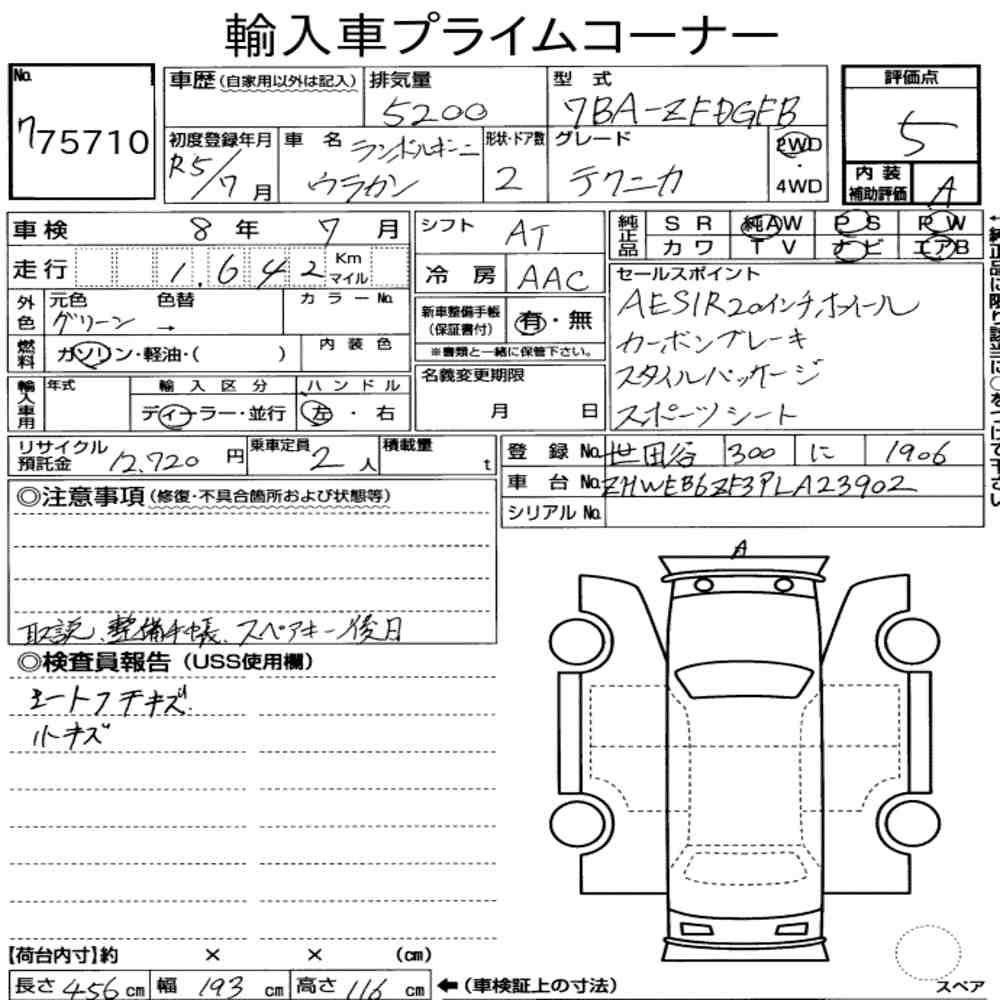 輸入車プライムコーナー
No. 775710
車歴 (自家用以外は記入)
排気量 5200
型式 7BA-ZFDGFB
評価点 5
初度登録年月 R5/7月
車名 ランボルギーニ ウラカン
形状・ドア数 2
グレード テクニカ
2WD・4WD
内装補助評価 A
車検 8年 7月
シフト AT
純正品 SR 純AW PS RW
カワ TV ナビ エアB
走行 1,642 Km マイル
冷房 AAC
セールスポイント
AESIR20インチホイール
カーボンブレーキ
スタイルパッケージ
スポーツシート
外色 元色 グリーン 色替 → カラーNo.
新車整備手帳(保証書付) 有・無
※書類と一緒に保管下さい。
燃料 ガソリン・軽油・( ) 内装色
名義変更期限 月 日
輸入車用 年式 輸入区分 ディーラー・並行 ハンドル 左・右
リサイクル預託金 12,720円 乗車定員 2人 積載量 t
登録No. 世田谷 300 に 1906
車台No. ZHWEB6ZF3PLA23902
シリアルNo.
◎注意事項 (修復・不具合箇所および状態等)
取説、整備手帳、スペアキー後日
◎検査員報告 (USS使用欄)
シートフチキズ
小キズ
A
【荷台内寸】約 × × (cm)
長さ 456 cm 幅 193 cm 高さ 116 cm ←(車検証上の寸法)
スペア
←純正品に限り該当に○をつけて下さい